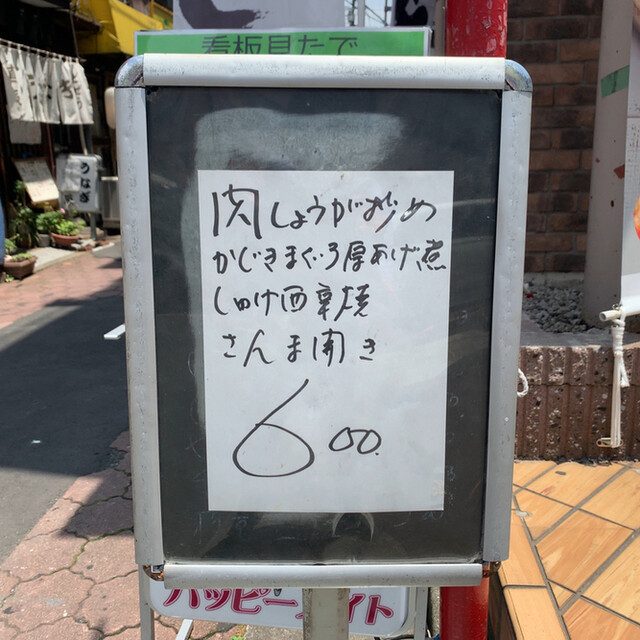 看板見たで
うなぎ
肉しょうが炒め
かじきまぐろ厚あげ煮
しゃけ西京焼
さんま開き
600
ハッピーナイト